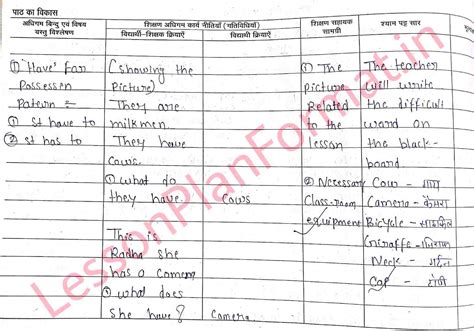 पाठ का विकास
अधिगम बिन्दु एवं विषय वस्तु विश्लेषण
शिक्षण अधिगम कार्य नीतियाँ (गतिविधियाँ)
विद्यार्थी-शिक्षक क्रियाऐं
विद्यार्थी क्रियाऐं
शिक्षण सहायक सामग्री
श्याम पट्ट सार
① 'Have' For
Possession
Patern :-
① It have to
② It has to
(showing the
Picture)
They are
milkmen.
They have
Cows.
① what do
they have.
Cows
This is
Radha she
has a camera
① what does
She have?
Camera
① The
picture
Related
to the
lesson
② Necessary
Class-room
equipment
The teacher
will write
the difficult
word on
the black-
board
Cow - गाय
Camera - कैमरा
Bicycle - साइकिल
Giraffe - जिराफ
Neck - गर्दन
Cap - टोपी
LessonPlanFormat.in